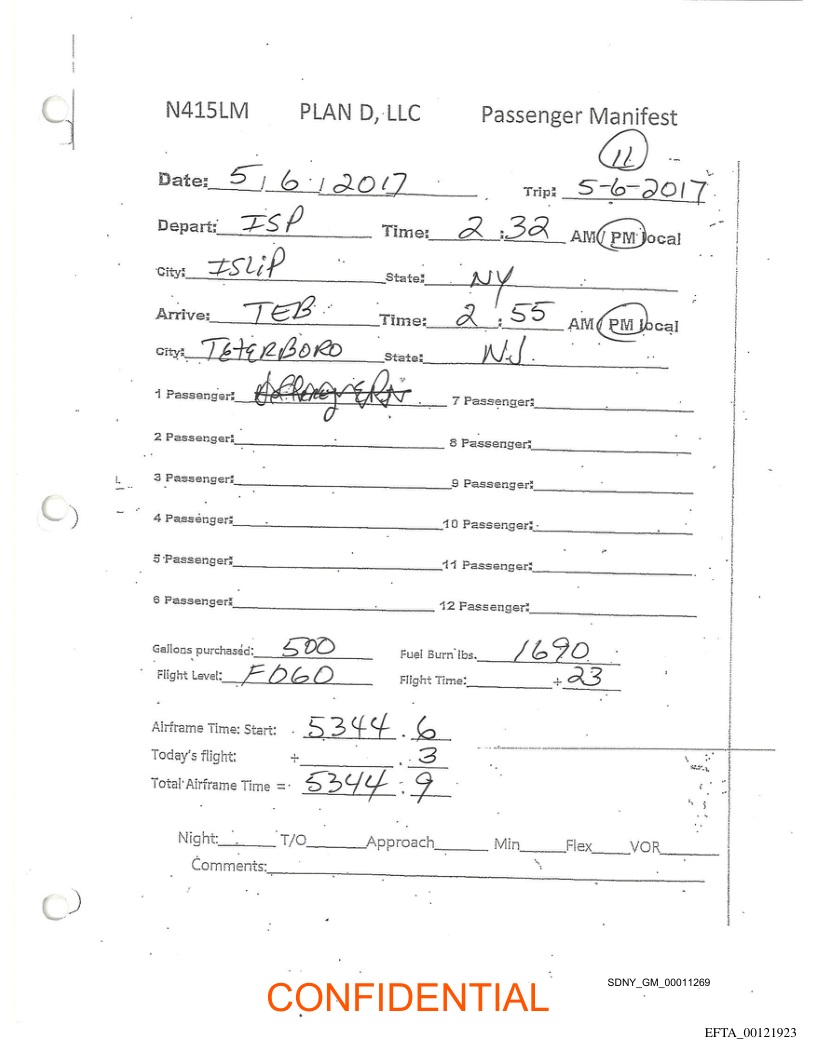 N415LM PLAN D, LLC Passenger Manifest
11
Date: 5 / 6 / 2017 Trip: 5-6-2017
Depart: ISP Time: 2 : 32 AM / PM local
City: ISLIP State: NY
Arrive: TEB Time: 2 : 55 AM / PM local
City: TETERBORO State: NJ.
1 Passenger: 7 Passenger:
2 Passenger: 8 Passenger:
3 Passenger: 9 Passenger:
4 Passenger: 10 Passenger:
5 Passenger: 11 Passenger:
6 Passenger: 12 Passenger:
Gallons purchased: 500 Fuel Burn lbs. 1690
Flight Level: F060 Flight Time: + 23
Airframe Time: Start: 5344 . 6
Today's flight: + . 3
Total Airframe Time = 5344 . 9
Night: T/O Approach Min Flex VOR
Comments:
CONFIDENTIAL
SDNY_GM_00011269
EFTA_00121923